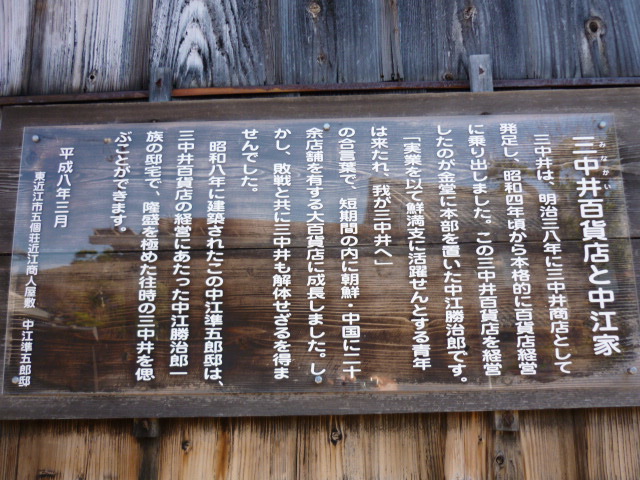 三中井百貨店と中江家
みなかい
三中井は、明治三八年に三中井商店として
発足し、昭和四年頃から本格的に百貨店経営
に乗り出しました。この三中井百貨店を経営
したのが金堂に本部を置いた中江勝治郎です。
「実業を以て鮮満支に活躍せんとする青年
は来たれ、我が三中井へ」
の合言葉で、短期間の内に朝鮮・中国に二十
余店舗を有する大百貨店に成長しました。し
かし、敗戦と共に三中井も解体せざるを得ま
せんでした。
昭和八年に建築されたこの中江準五郎邸は、
三中井百貨店の経営にあたった中江勝治郎一
族の邸宅で、隆盛を極めた往時の三中井を偲
ぶことができます。
平成八年三月
東近江市五個荘近江商人屋敷 中江準五郎邸